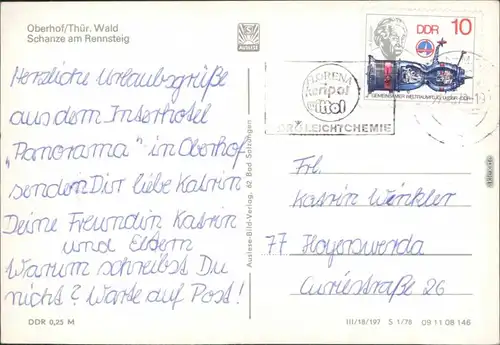 Oberhof/Thür. Wald
Schanze am Rennsteig
AUSLESE
Herzliche Urlaubsgrüße
aus dem Interhotel
"Panorama" in Oberhof
senden Dir liebe Katrin
Deine Freundin Katrin
und Eltern
Warum schreibst Du
nicht? Warte auf Post!
DDR 0,25 M
Auslese-Bild-Verlag, 62 Bad Salzungen
DDR 10
GEMEINSAMER WELTRAUMFLUG UdSSR-DDR
FLORENA
LEICHTCHEMIE
Frl.
Katrin Winkler
77 Hoyerswerda
Curiestraße 26
III/18/197 S 1/78 09 11 08 146